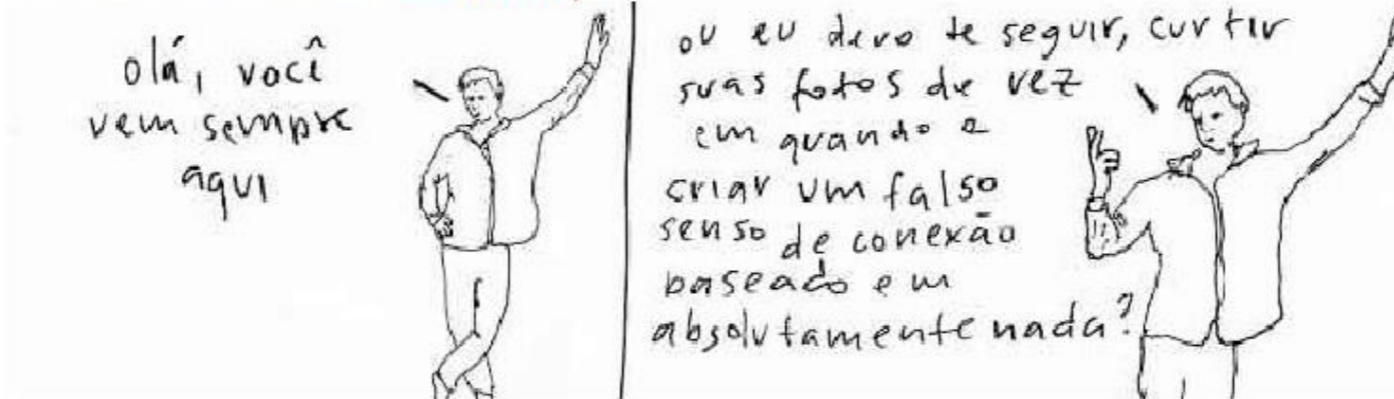 olá, você
vem sempre
aqui
ou eu devo te seguir, curtir
suas fotos de vez
em quando e
criar um falso
senso de conexão
baseado em
absolutamente nada?